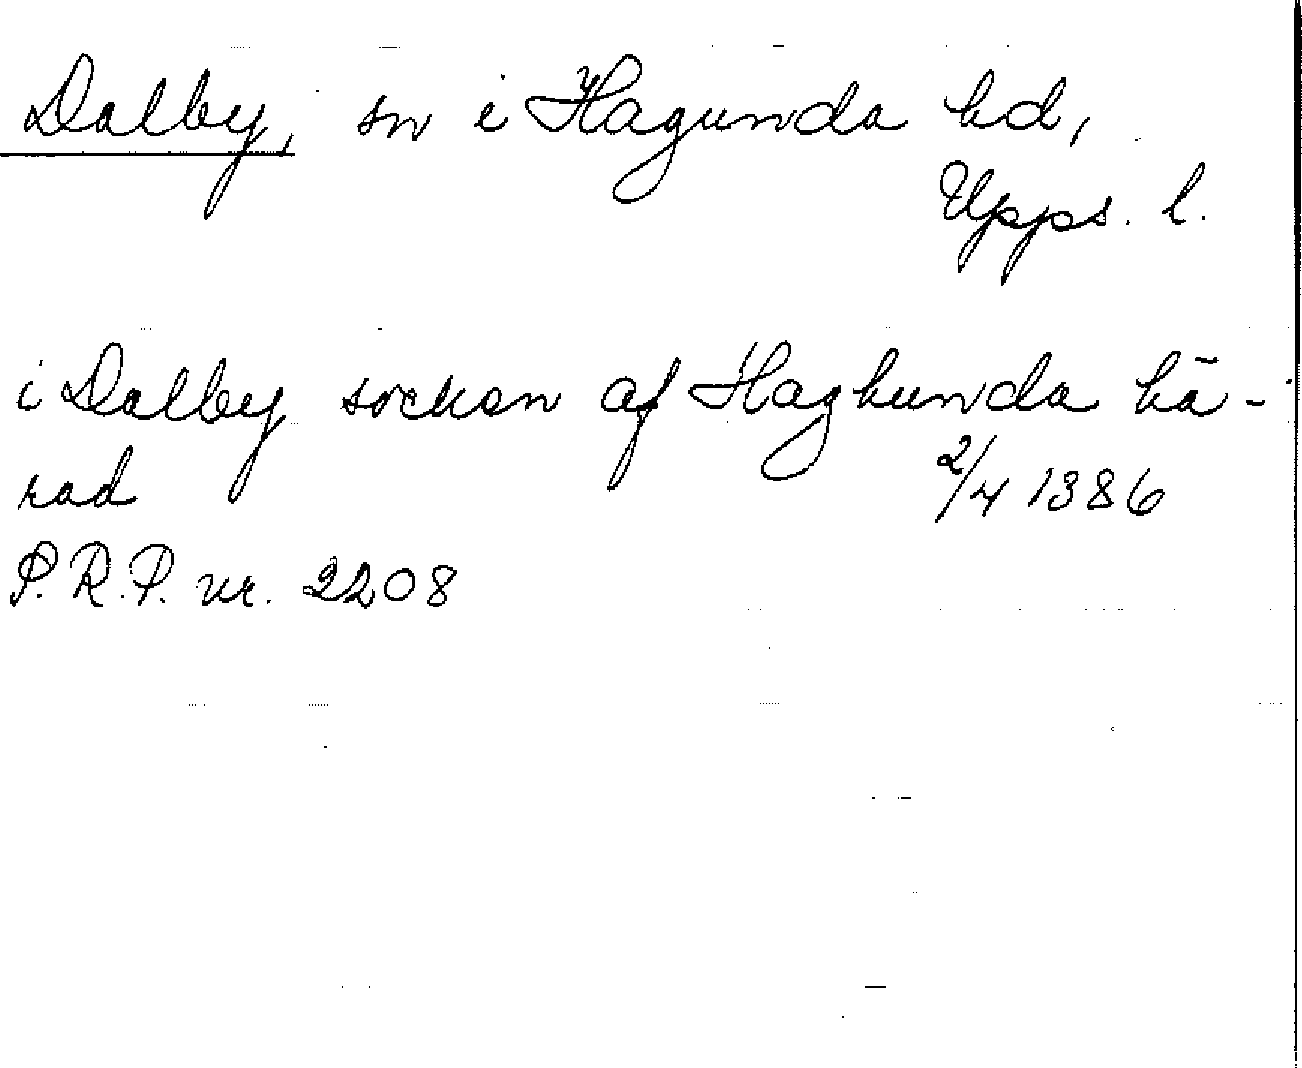 Dalby, sn i Hagunda hd,
Upps. l.
i Dalby socken af Haghunda hä-
rad 2/4 1386
P.R.P. nr. 2208